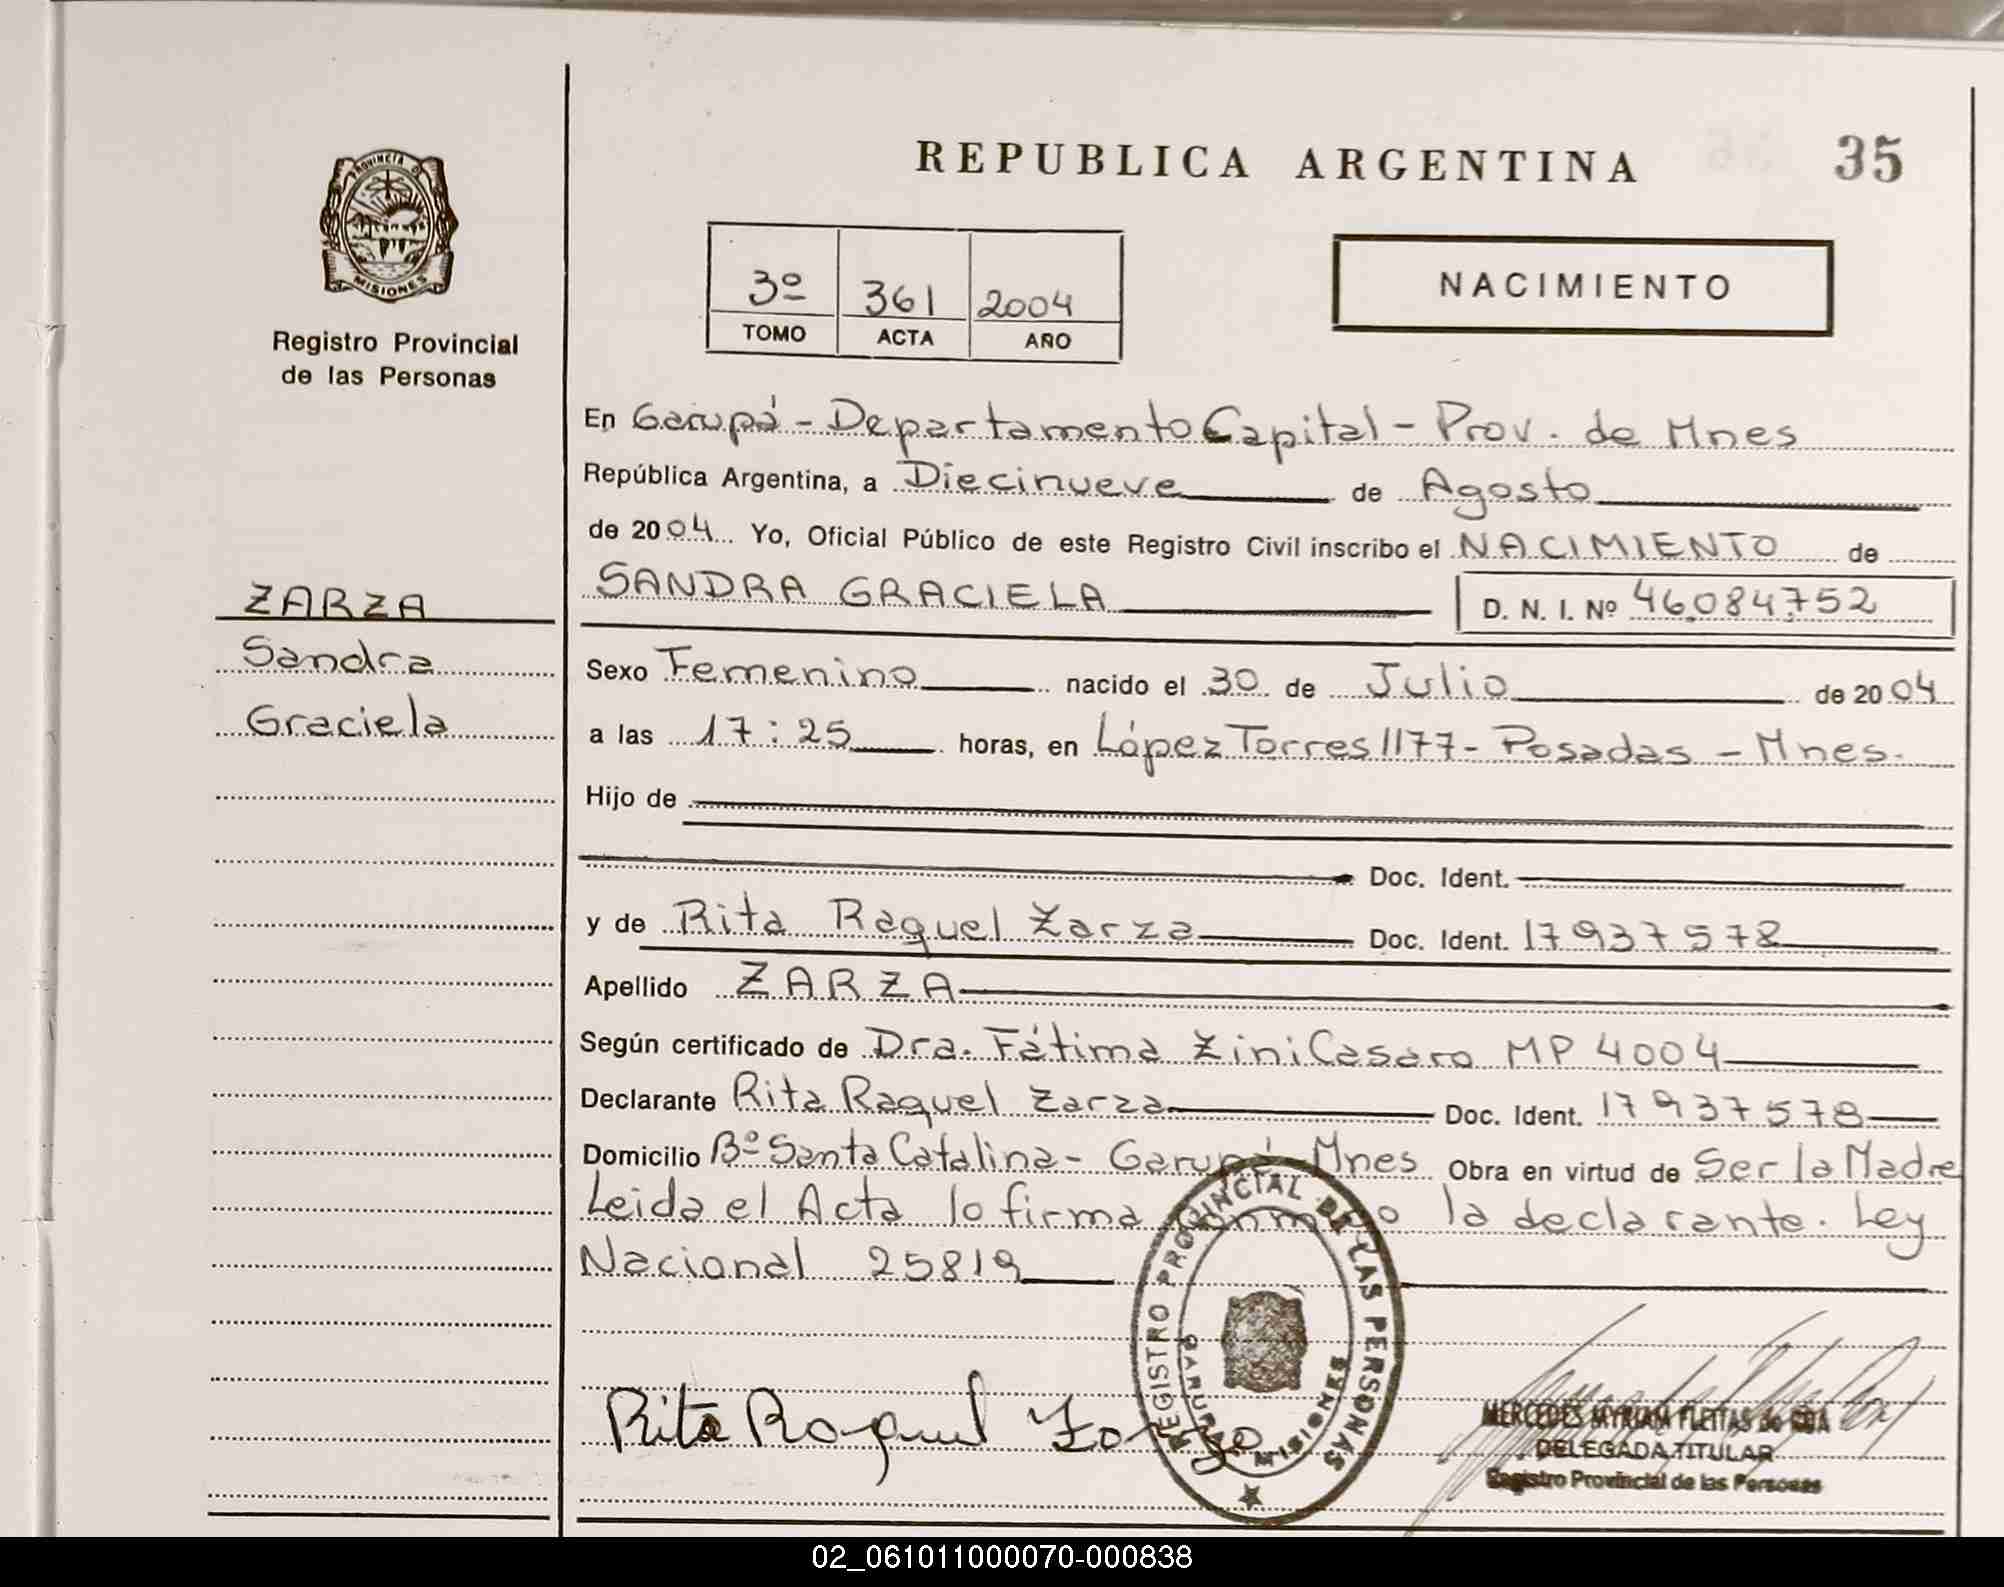 REPUBLICA ARGENTINA
35
PROVINCIA D
MISIONES
Registro Provincial
de las Personas
3º 361 2004
TOMO ACTA AÑO
NACIMIENTO
En Garupá - Departamento Capital - Prov. de Mnes
República Argentina, a Diecinueve de Agosto
de 2004 Yo, Oficial Público de este Registro Civil inscribo el NACIMIENTO de
SANDRA GRACIELA D. N. I. Nº 46.084.752
ZARZA
Sandra
Graciela
Sexo Femenino nacido el 30 de Julio de 2004
a las 17:25 horas, en López Torres 1177 - Posadas - Mnes.
Hijo de
Doc. Ident.
y de Rita Raquel Zarza Doc. Ident. 17937578
Apellido ZARZA
Según certificado de Dra. Fátima Zini Casaro MP 4004
Declarante Rita Raquel Zarza Doc. Ident. 17937578
Domicilio Bº Santa Catalina - Garupá Mnes Obra en virtud de Ser la Madre
Leida el Acta lo firma conmigo la declarante. Ley
Nacional 25819
REGISTRO PROVINCIAL DE LAS PERSONAS
GARUPA MISIONES
Rita Raquel Zarza
MERCEDES MYRIAM FLEITAS de
DELEGADA TITULAR
Registro Provincial de las Personas
02_061011000070-000838